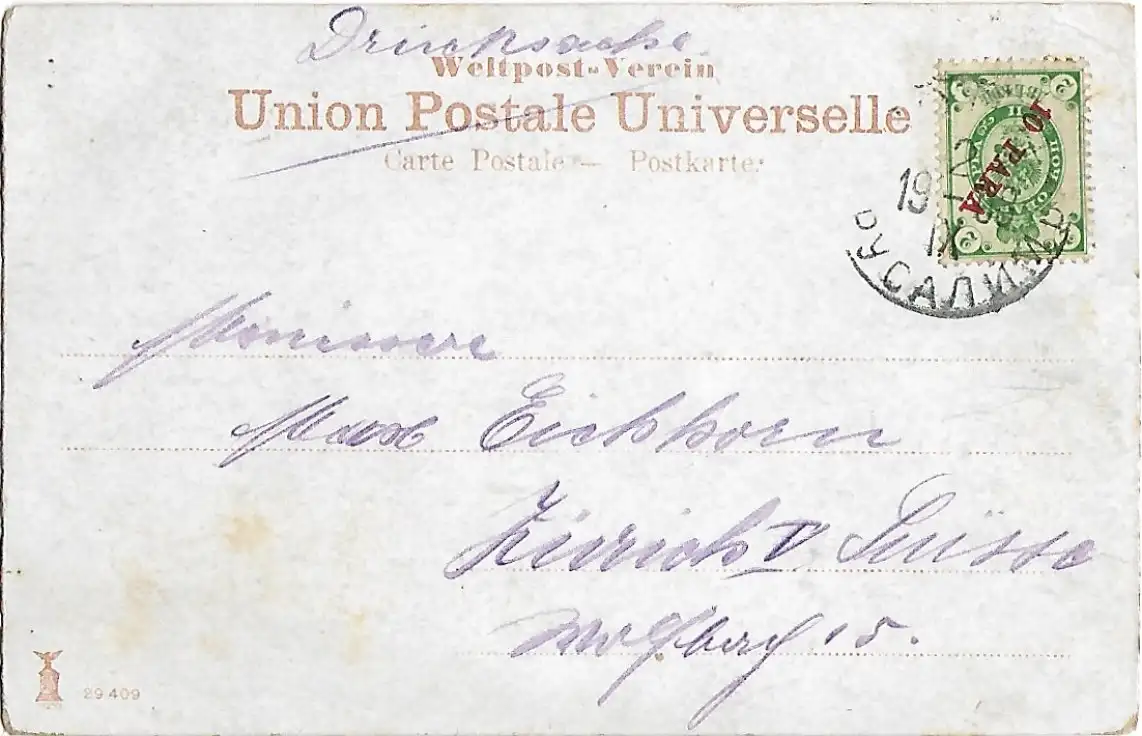 Drucksache.
Weltpost-Verein
Union Postale Universelle
Carte Postale — Postkarte
10 PARA
2
2
2
19
IX
УСАЛИМЪ
Monsieur
Max Eichhorn
Zürich V Suisse
15.
29409